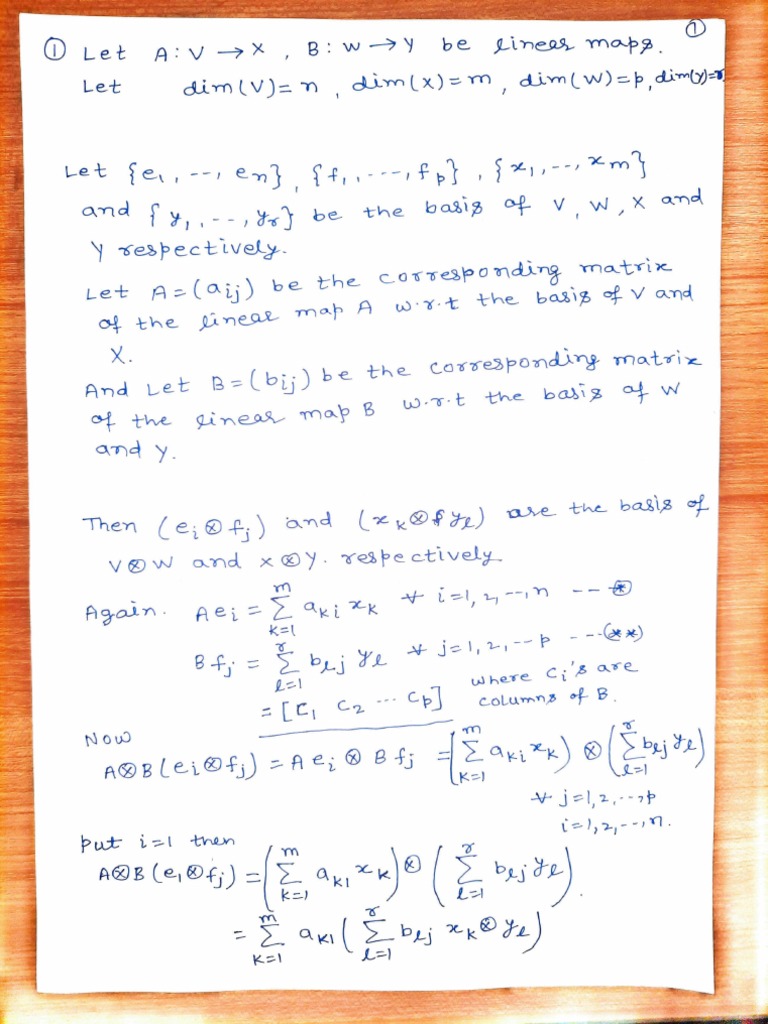 ①
① Let A: V → X , B: W → Y be linear maps.
Let dim(V)=n , dim(X)=m , dim(W)=p, dim(Y)=r
Let {e₁, --, eₙ}, {f₁, ---, fₚ}, {x₁, --, xₘ}
and {y₁, --, yᵣ} be the basis of V, W, X and
Y respectively.
Let A = (aᵢⱼ) be the corresponding matrix
of the linear map A w.r.t the basis of V and
X.
And Let B = (bᵢⱼ) be the corresponding matrix
of the linear map B w.r.t the basis of W
and Y.
Then (eᵢ ⊗ fⱼ) and (xₖ ⊗ yₗ) are the basis of
V⊗W and X⊗Y. respectively
Again. Aeᵢ = \sum_{k=1}^{m} a_{ki} x_k ∀ i=1, 2, --, n -- ⊛
Bfⱼ = \sum_{l=1}^{r} b_{lj} y_l ∀ j=1, 2, -- p --- (**)
= [C₁ C₂ ... Cₚ] where Cᵢ's are
columns of B.
Now
A⊗B(eᵢ⊗fⱼ) = Aeᵢ ⊗ Bfⱼ = (\sum_{k=1}^{m} a_{ki} x_k) ⊗ (\sum_{l=1}^{r} b_{lj} y_l)
∀ j=1, 2, --, p
i=1, 2, --, n.
put i=1 then
A⊗B(e₁⊗fⱼ) = (\sum_{k=1}^{m} a_{k1} x_k) ⊗ (\sum_{l=1}^{r} b_{lj} y_l).
= \sum_{k=1}^{m} a_{k1} (\sum_{l=1}^{r} b_{lj} x_k ⊗ y_l)